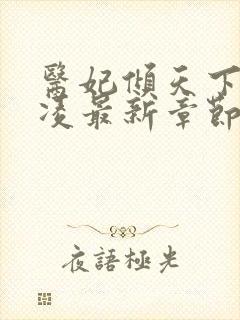 醫妃傾天下
凌最新章節
夜語極光